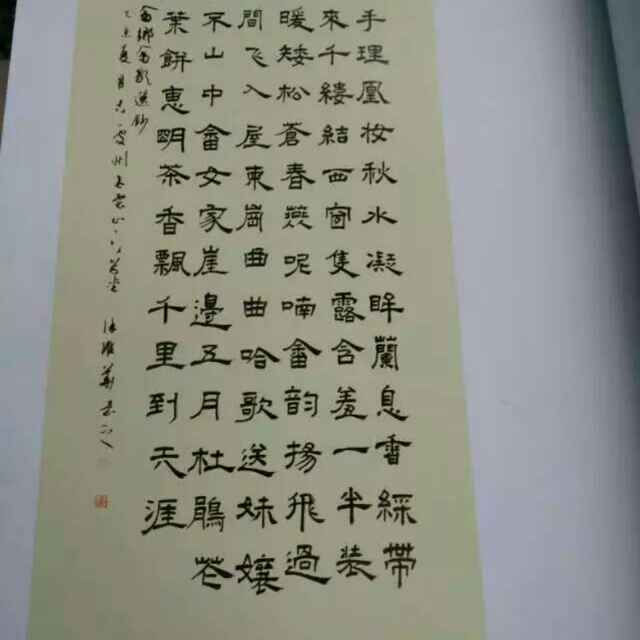 手理凰妆秋水凝眸蘭息香綵帶
來千縷結西窗隻露含羞一半装
暖矮松蒼春燕呢喃畲韵揚飛過
間飞入屋東崗曲曲哈歌送妹嬢
不山中畲女家崖邊五月杜鵑花
葉餅惠明茶香飄千里到天涯
畲鄉畲歌選鈔